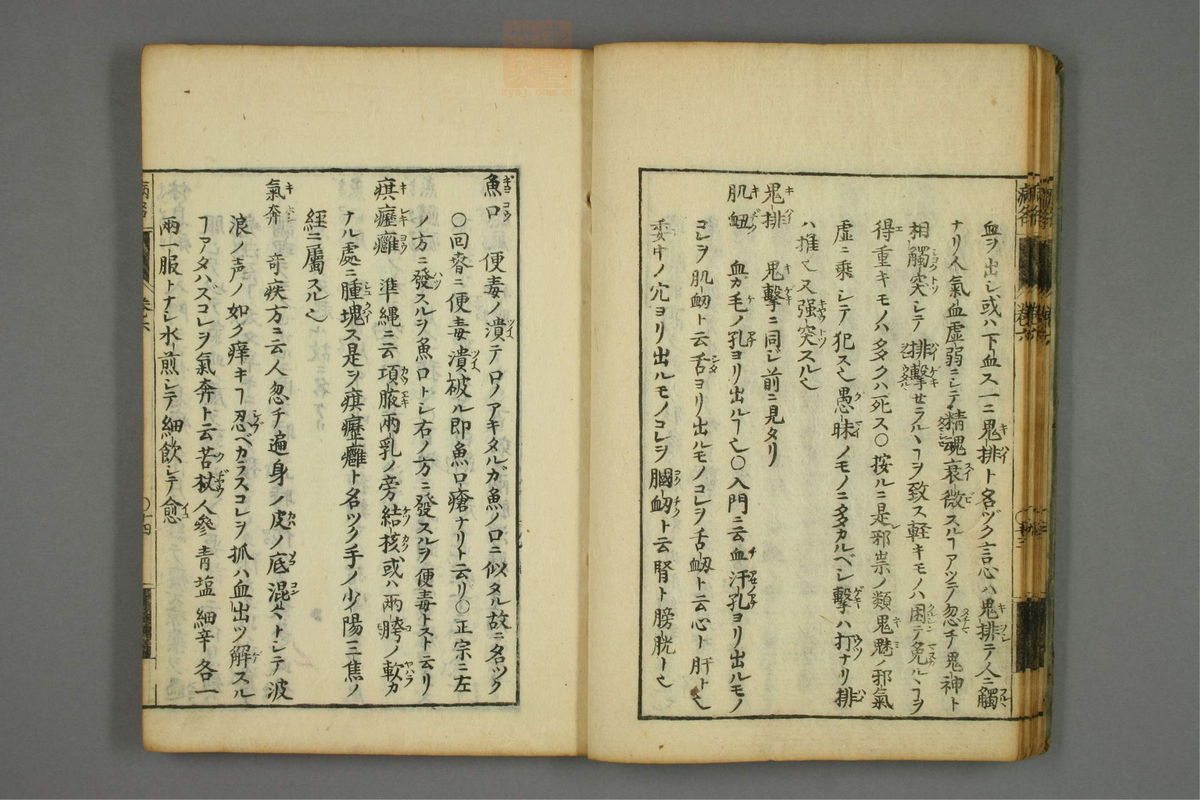 血ヲ出シ或ハ下血ス一ニ鬼排ト名ヅク言心ハ鬼排テ人ニ觸
ナリ人氣血虚弱ニシテ精魂衰微スルヿアツテ忽チ鬼神ト
相觸突シテ排擊セラルヽヿヲ致ス軽キモノハ困テ免ルヽヿヲ
得重キモノハ多クハ死ス〇按ルニ是邪祟ノ類鬼魅ノ邪氣
虚ニ乘シテ犯ス也愚昧ノモノニ多カルベシ擊ハ打ナリ排
ハ推也又强突スル也
鬼排 鬼擊ニ同シ前ニ見タリ
肌衄 血ガ毛ノ孔ヨリ出ルヿ也〇入門ニ云血汗孔ヨリ出ルモノ
コレヲ肌衄ト云舌ヨリ出ルモノコレヲ舌衄ト云心ト肝ト也
委中ノ穴ヨリ出ルモノコレヲ膕衄ト云腎ト膀胱ト也
魚口 便毒ノ潰テ口ノアキタルガ魚ノ口ニ似タル故ニ名ツク
〇回春ニ便毒潰破ル即魚口瘡ナリト云リ〇正宗ニ左
ノ方ニ發スルヲ魚口トシ右ノ方ニ發スルヲ便毒トスト云リ
㾐癧癰 準縄ニ云項腋兩乳ノ旁結核或ハ兩胯ノ軟カ
ナル處ニ腫塊ス是ヲ㾐癧癰ト名ツク手ノ少陽三焦ノ
經ニ屬スル也
氣奔 奇疾方ニ云人忽チ遍身ノ皮ノ底混々トシテ波
浪ノ声ノ如ク痒キヿ忍ベカラスコレヲ抓ハ血出ツ解スル
ヿアタハズコレヲ氣奔ト云苦杖人參青塩細辛各一
兩一服トナシ水煎シテ細飲シテ愈